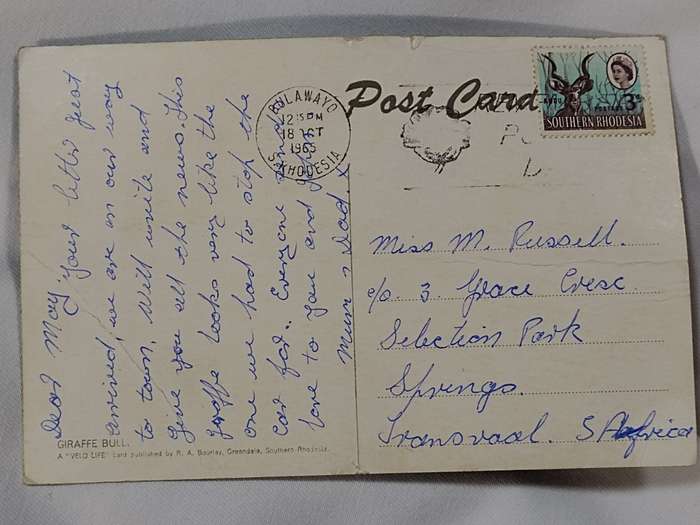 Dear May, Your letter just
arrived, we are on our way
to town. Will write and
give you all the news. This
giraffe looks very like the
one we had to stop the
car for. Everyone sends
love to you and
Mum & Dad. x
GIRAFFE BULL.
A "VELD LIFE" card published by R. A. Bourlay, Greendale, Southern Rhodesia.
Post Card
BULAWAYO
12 15 PM
18 OCT
1965
S. RHODESIA
POSTAGE
3d
SOUTHERN RHODESIA
Miss M. Russell.
c/o. 3. Grace Cresc.
Selection Park
Springs.
Transvaal. S Africa